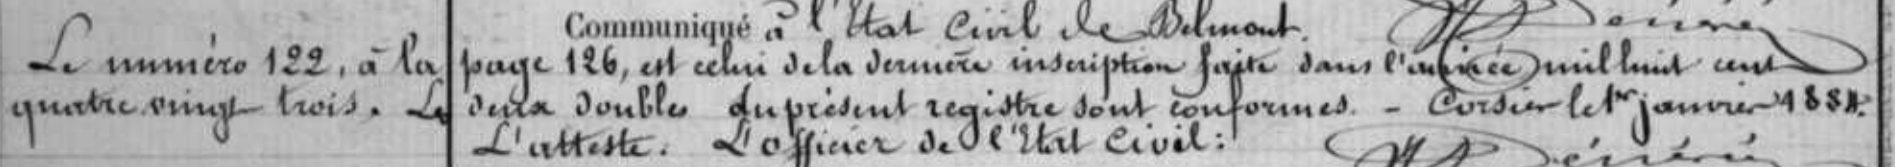 Communiqué à l'Etat Civil de Belmont.
Le numéro 122, à la page 126, est celui de la dernière inscription faite dans l'année mil huit cent
quatre vingt trois. Les deux doubles du présent registre sont conformes. - Corsier le 1er janvier 1884.
L'atteste. L'officier de l'Etat Civil: